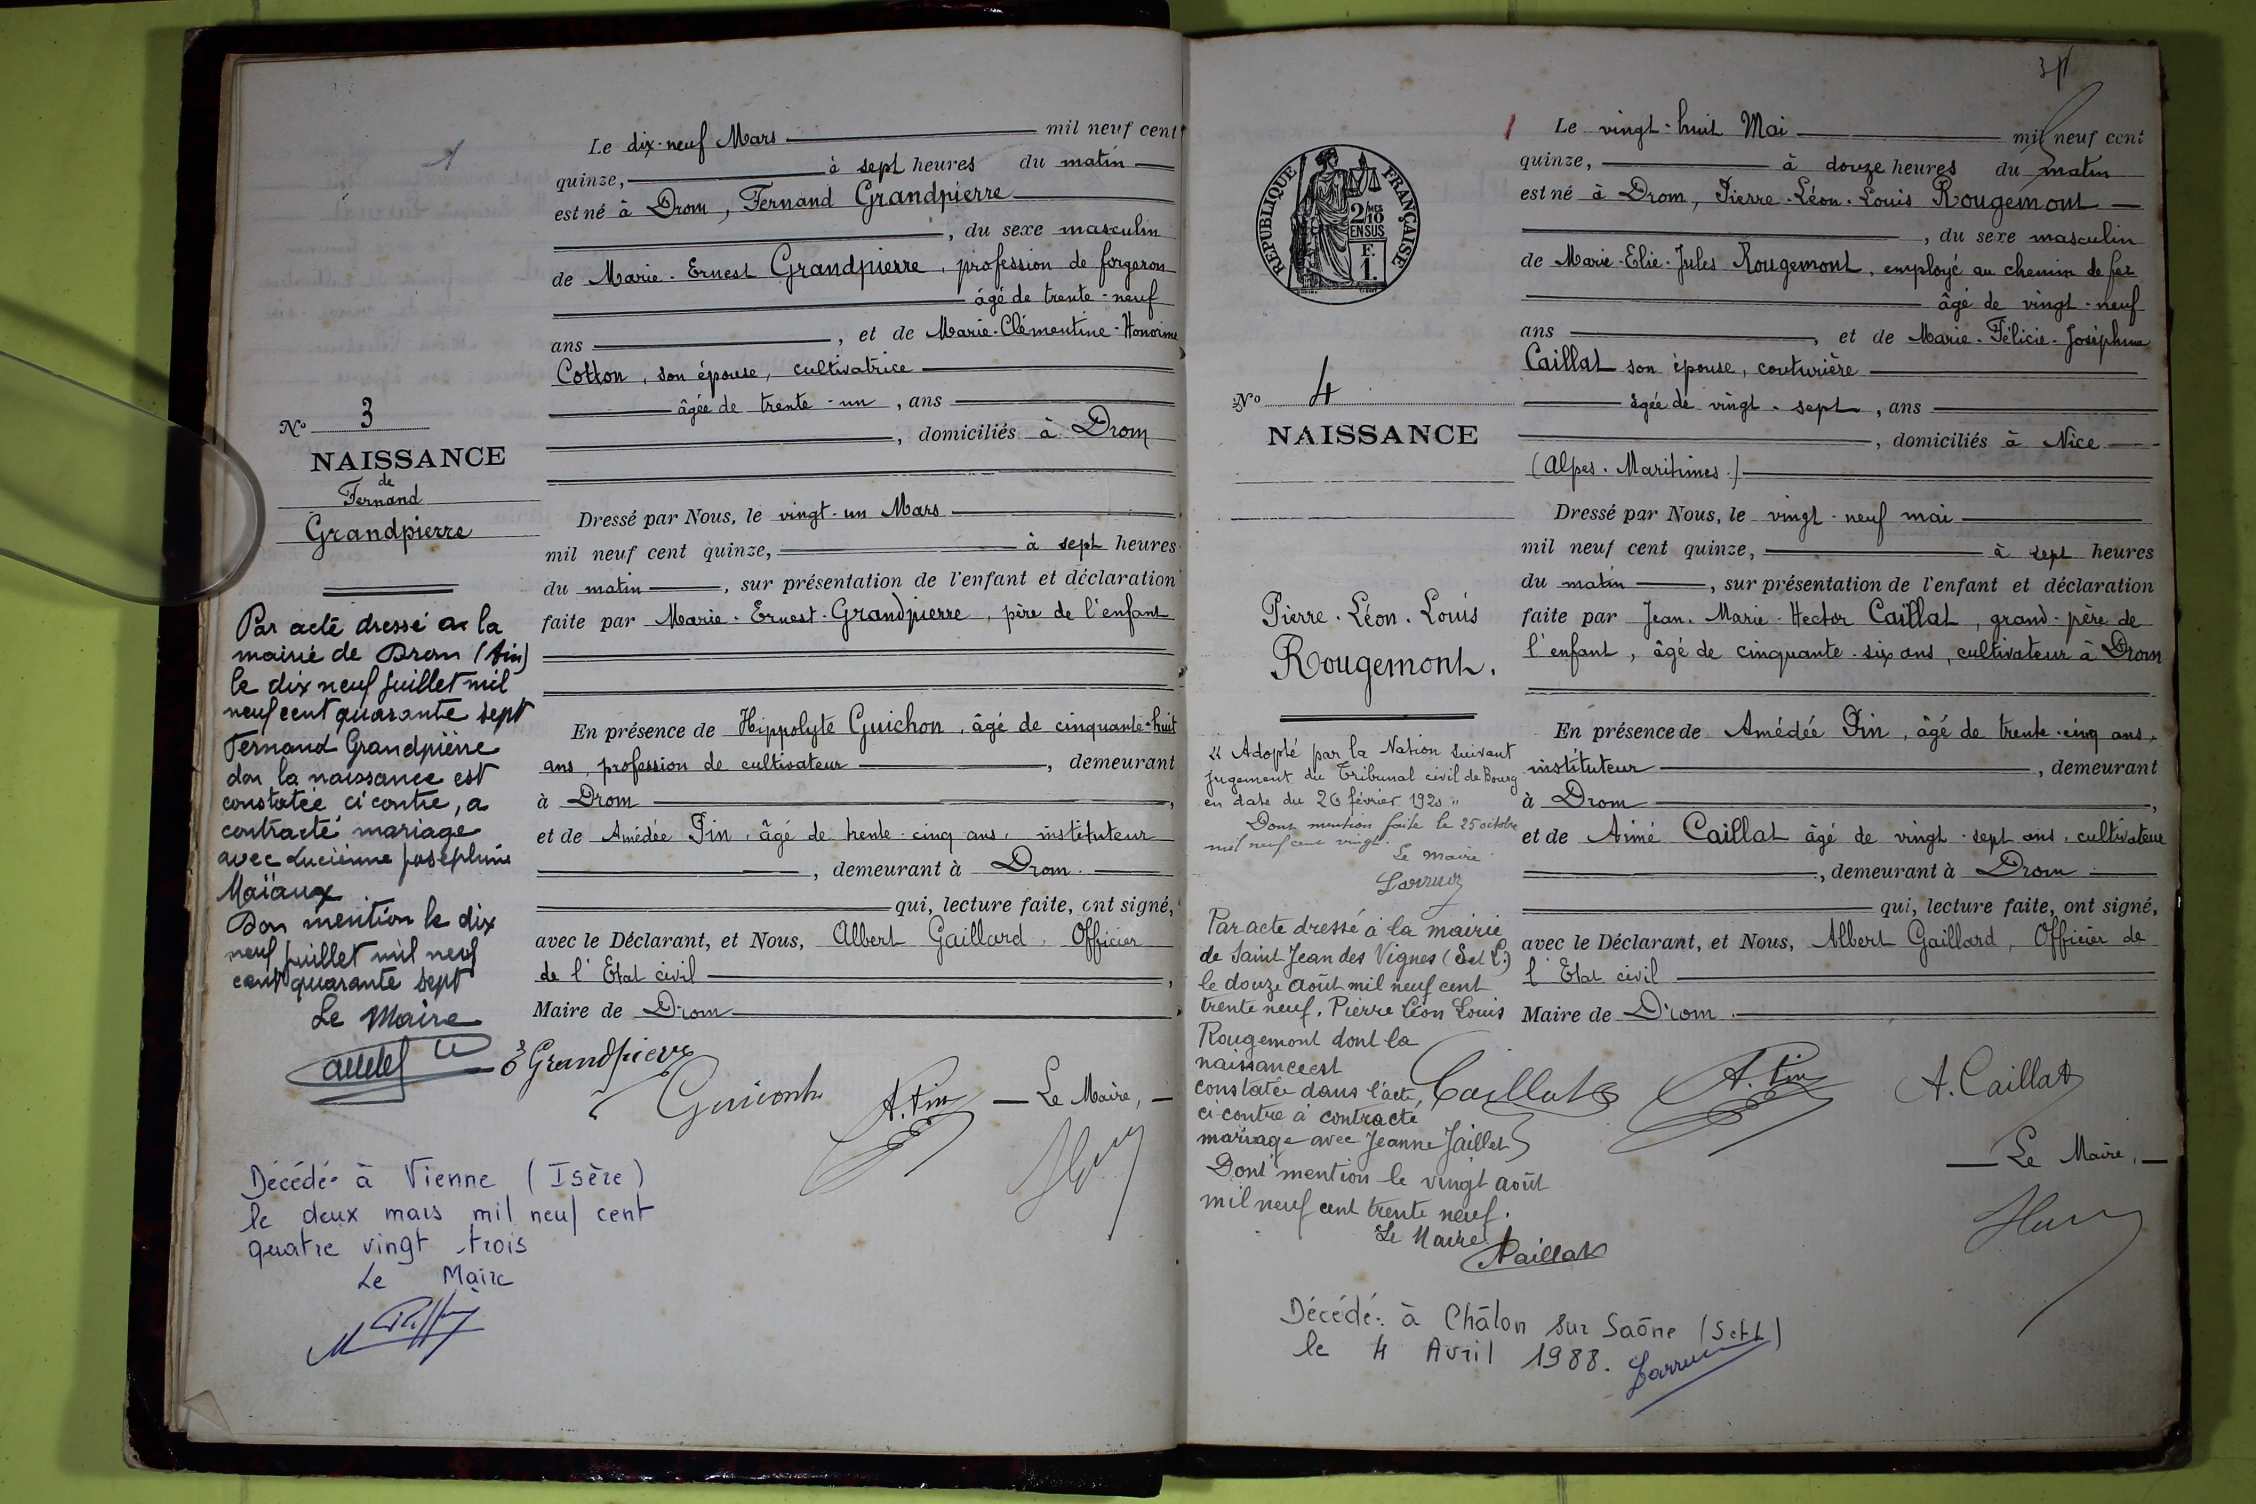 Le dix-neuf Mars mil neuf cent
quinze, à sept heures du matin
est né à Drom, Fernand Grandpierre
, du sexe masculin
de Marie-Ernest Grandpierre, profession de forgeron
âgé de trente-neuf
ans , et de Marie-Clémentine-Honorine
Cotton, son épouse, cultivatrice
âgée de trente-un , ans
, domiciliés à Drom
No 3
NAISSANCE
de
Fernand
Grandpierre
Dressé par Nous, le vingt-un Mars
mil neuf cent quinze, à sept heures
du matin , sur présentation de l'enfant et déclaration
faite par Marie-Ernest-Grandpierre, père de l'enfant
En présence de Hippolyte Guichon, âgé de cinquante-huit
ans, profession de cultivateur , demeurant
à Drom ,
et de Amédée Pin, âgé de trente-cinq ans, instituteur
, demeurant à Drom.
qui, lecture faite, ont signé,
avec le Déclarant, et Nous, Albert Gaillard, Officier
de l'Etat civil ,
Maire de Drom
Par acte dressé a la
mairie de Drom (Ain)
le dix neuf juillet mil
neuf cent quarante sept
Fernand Grandpierre
don la naissance est
constatée ci contre, a
contracté mariage
avec Lucienne Joséphine
Maïaux
Don mention le dix
neuf juillet mil neuf
cent quarante sept
Le Maire
E Grandpierre
Guichon
A. Pin
Le Maire,
Décédé à Vienne (Isère)
le deux mars mil neuf cent
quatre vingt trois
Le Maire
Le vingt-huit Mai mil neuf cent
quinze, à douze heures du matin
est né à Drom, Pierre-Léon-Louis Rougemont
, du sexe masculin
de Marie-Elie-Jules Rougemont, employé au chemin de fer
âgé de vingt-neuf
ans , et de Marie-Félicie-Joséphine
Caillat son épouse, couturière
âgée de vingt-sept , ans
, domiciliés à Nice
(Alpes-Maritimes)
RÉPUBLIQUE FRANÇAISE
2/10 MES
EN SUS
F.
1.
No 4
NAISSANCE
Pierre-Léon-Louis
Rougemont.
Dressé par Nous, le vingt-neuf mai
mil neuf cent quinze, à sept heures
du matin , sur présentation de l'enfant et déclaration
faite par Jean-Marie-Hector Caillat, grand-père de
l'enfant, âgé de cinquante-six ans, cultivateur à Drom
En présence de Amédée Pin, âgé de trente-cinq ans,
instituteur , demeurant
à Drom ,
et de Aimé Caillat âgé de vingt-sept ans, cultivateur
, demeurant à Drom
qui, lecture faite, ont signé,
avec le Déclarant, et Nous, Albert Gaillard, Officier de
l'Etat civil
Maire de Drom
"Adopté par la Nation suivant
jugement du Tribunal civil de Bourg
en date du 26 février 1920"
Dont mention faite le 25 octobre
mil neuf cent vingt.
Le Maire
Par acte dressé à la mairie
de Saint Jean des Vignes (S et L.)
le douze août mil neuf cent
trente neuf, Pierre Léon Louis
Rougemont dont la
naissance est
constatée dans l'acte
ci-contre à contracté
mariage avec Jeanne Jaillet
Dont mention le vingt août
mil neuf cent trente neuf.
Le Maire
Caillat
Caillat
A. Pin
A. Caillat
Le Maire,
Décédé à Châlon sur Saône (S et L)
le 4 Avril 1988.